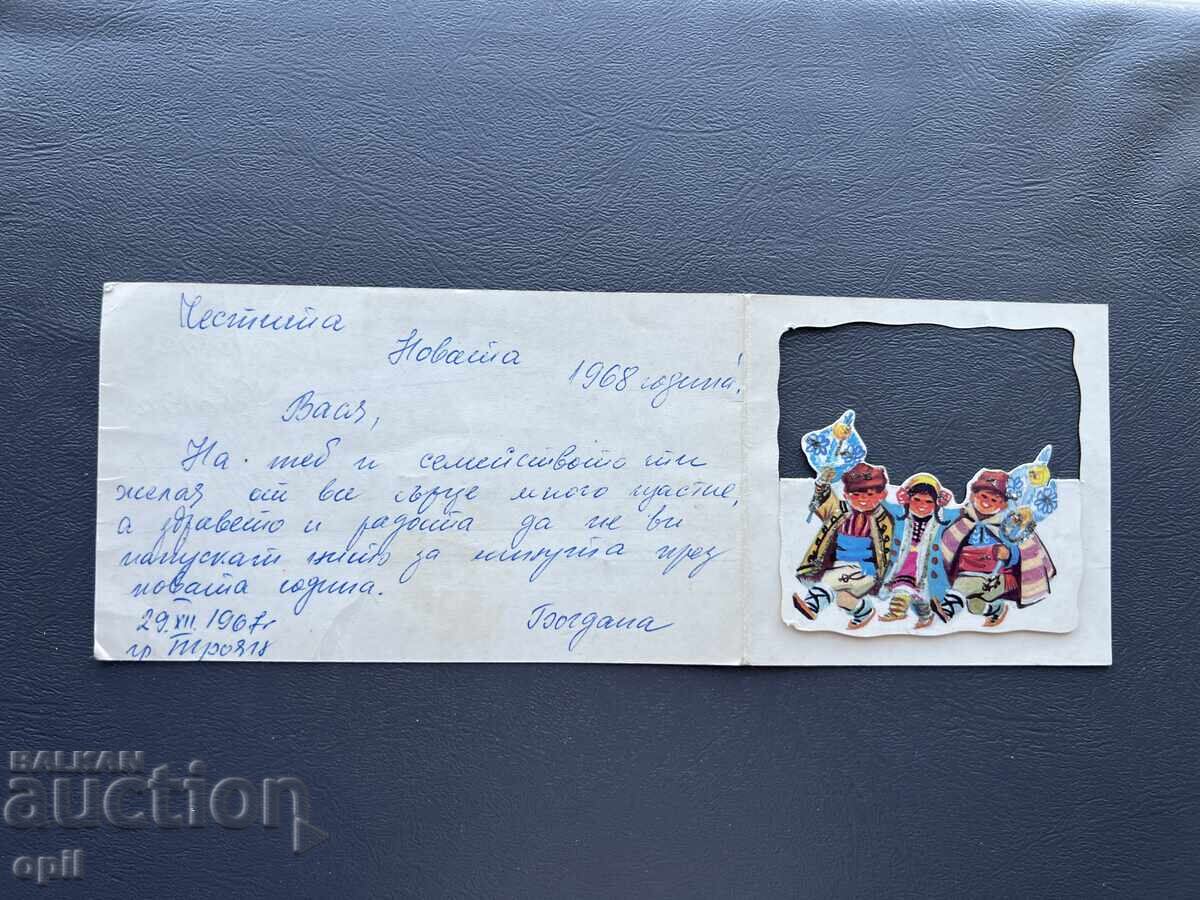 Честита
Новата
1968 година!
Вася,
На теб и семейството ти
желая от все сърце много щастие,
а здравето и радостта да не ви
напускат нито за минута през
новата година.
29.XII.1967г
гр Троян
Богдана
BALKAN
auction
opil